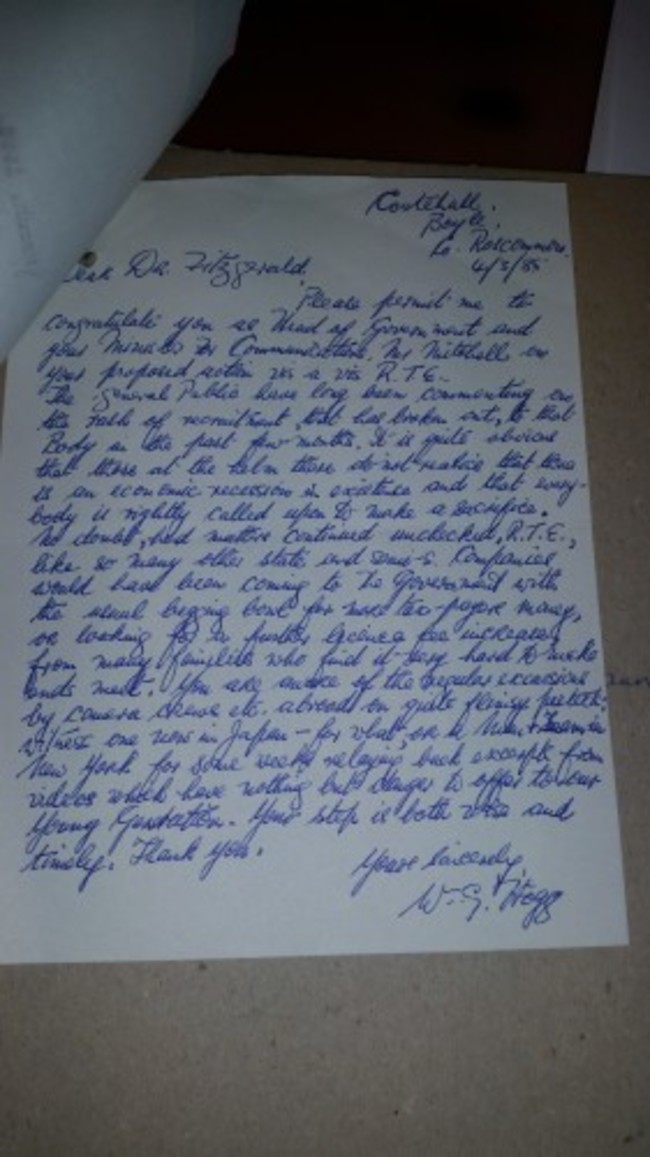 Cootehall,
Boyle,
Co. Roscommon.
4/3/85
Dear Dr. Fitzgerald,
Please permit me to
congratulate you as Head of Government and
your Minister for Communications, Mr Mitchell on
your proposed action vis a vis R.T.E.
The general Public have long been commenting on
the rash of recruitment, that has broken out, to that
Body in the past few months. It is quite obvious
that those at the helm there do not realise that there
is an economic recession in existence and that every-
body is rightly called upon to make a sacrifice.
No doubt, had matters continued unchecked, R.T.E.,
like so many other state and semi-s. Companies
would have been coming to the Government with
the usual begging bowl for more tax-payers money,
or looking for a further licence fee increases
from many families who find it very hard to make
ends meet. You are aware of the regular excursions
by camera crews etc. abroad on quite flimsy pretexts.
Witness one now in Japan - for what, or a in
New York for some weeks relaying back excerpts from
videos which have nothing but danger to offer to our
Young Generation. Your step is both wise and
timely. Thank you.
Yours sincerely,
W. G.